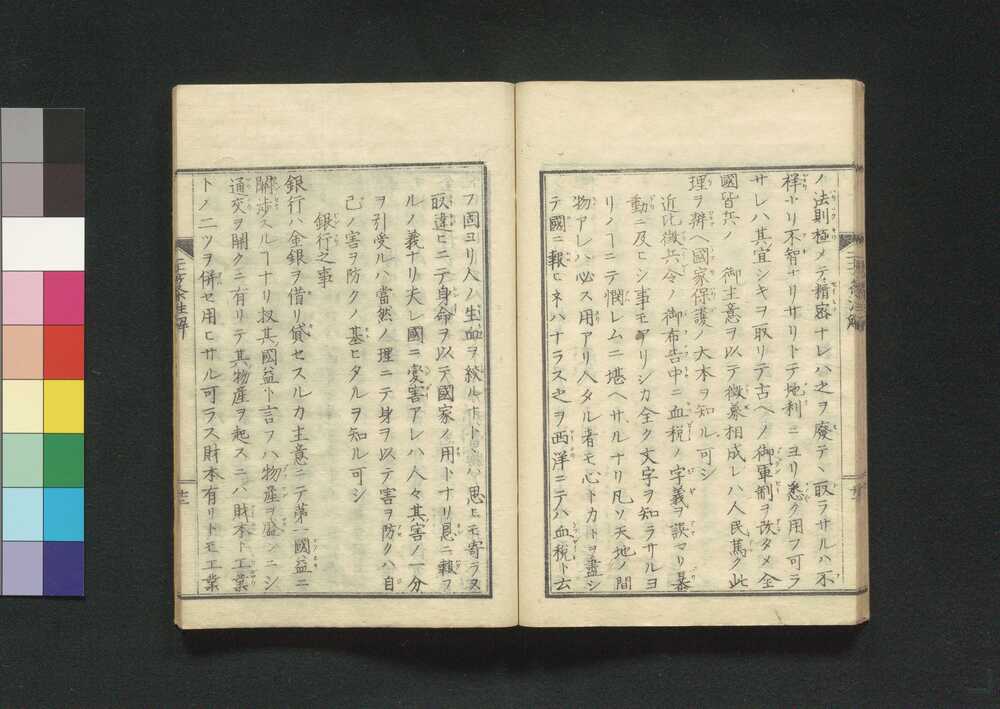 ノ法則極メテ精密ナレハ之ヲ廢テ、取ラサルハ不
祥ナリ不智ナリサリトテ地利ニヨリ悉ク用フ可ラ
サレハ其宜シキヲ取リテ古ヘノ御軍制ヲ改タメ全
國皆兵ノ 御主意ヲ以テ徴募相成レハ人民篤ク此
理ヲ辨ヘ國家保護ノ大本ヲ知ル可シ
近比徴兵令ノ御布告中ニ血税ノ字義ヲ誤マリ暴
動ニ及ヒシ事モアリシカ全ク文字ヲ知ラサルヨ
リノヿニテ憫レムニ堪ヘサルナリ凡ソ天地ノ間
物アレハ必ス用アリ人タル者モ心トカトヲ盡シ
テ國ニ報ヒネハナラス之ヲ西洋ニテハ血税ト云
フ固ヨリ人ノ生血ヲ絞ルトハ思ヒモ寄ラヌ
取違ヒニテ身命ヲ以テ國家ノ用トナリ恩ニ報フ
ルノ義ナリ夫レ國ニ災害アレハ人々其害ノ一分
ヲ引受ルハ當然ノ理ニテ身ヲ以テ害ヲ防クハ自
己ノ害ヲ防クノ基ヒタルヲ知ル可シ
銀行之事
銀行ハ金銀ヲ借リ貸セスルカ主意ニテ第一國益ニ
關渉スルヿナリ扨其國益ト言フハ物産ヲ盛ンニシ
通交ヲ開クニ有リテ其物産ヲ起スニハ財本ト工業
トノ二ツヲ併セ用ヒサル可ラス財本有リトモ工業